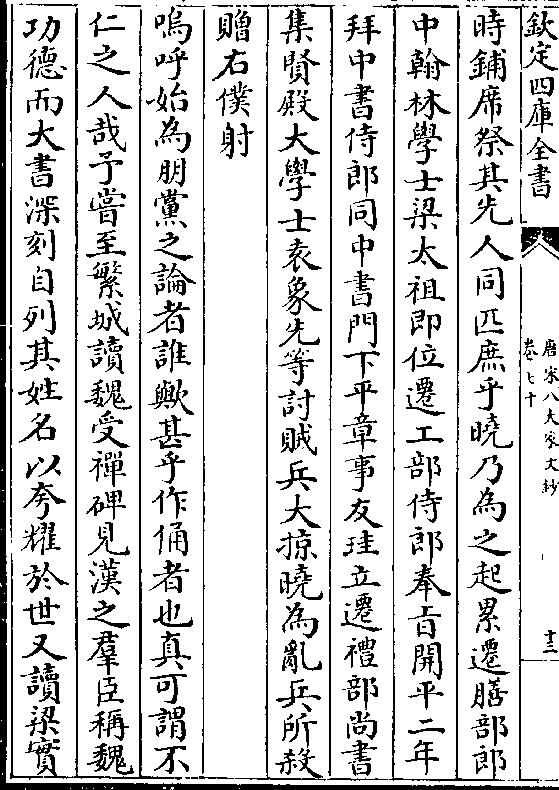 欽定四庫全書
唐宋八大家文鈔
卷七十
十三
時鋪席祭其先人同匹庶乎曉乃為之起累遷膳部郎
中翰林學士梁太祖即位遷工部侍郎奉㫖開平二年
拜中書侍郎同中書門下平章事友珪立遷禮部尚書
集賢殿大學士袁象先等討賊兵大掠曉為亂兵所殺
贈右僕射
嗚呼始為朋黨之論者誰歟甚乎作俑者也真可謂不
仁之人哉予嘗至繁城讀魏受禪碑見漢之羣臣稱魏
功德而大書深刻自列其姓名以夸耀於世又讀梁實